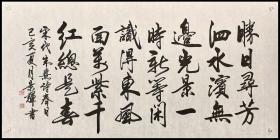 勝日尋芳
泗水濱無
邊光景一
時新等閑
識得東風
面萬紫千
紅總是春
宋代朱熹詩春日
己亥夏月書